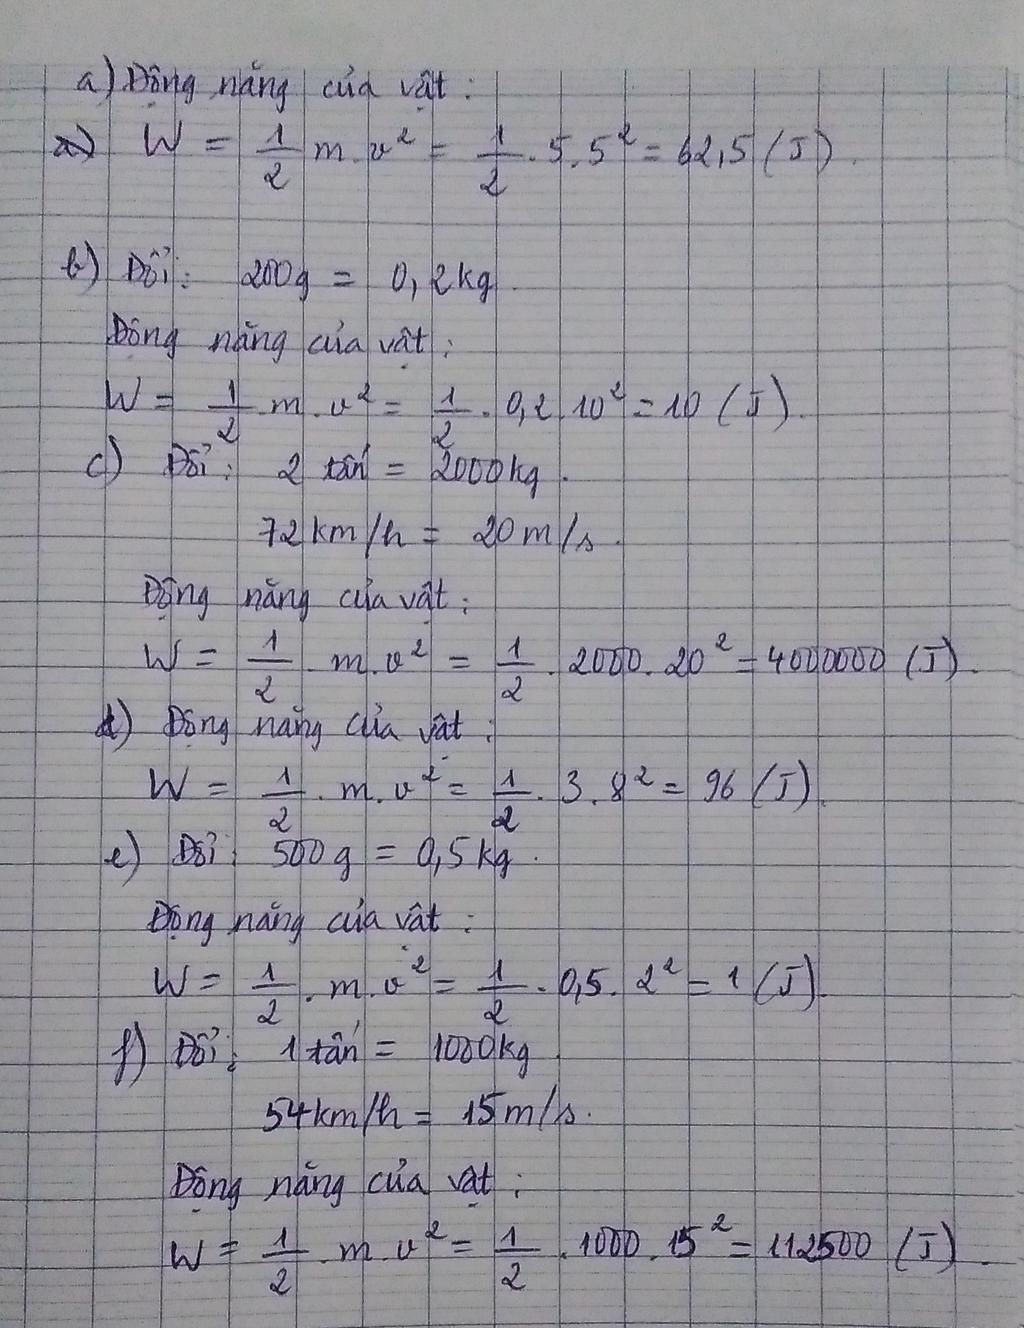 a) Động năng của vật :
W = 1/2 m.v² = 1/2 . 5.5² = 62,5 (J).
b) Đổi : 200g = 0,2kg.
Động năng của vật :
W = 1/2 m.v² = 1/2 . 0,2.10² = 10 (J).
c) Đổi : 2 tấn = 2000kg.
72km/h = 20m/s.
Động năng của vật :
W = 1/2 . m.v² = 1/2 . 2000.20² = 4000000 (J).
d) Động năng của vật :
W = 1/2 . m.v² = 1/2 . 3.8² = 96 (J).
e) Đổi : 500g = 0,5kg.
Động năng của vật :
W = 1/2 . m.v² = 1/2 . 0,5.2² = 1 (J).
f) Đổi : 1 tấn = 1000kg.
54km/h = 15m/s.
Động năng của vật :
W = 1/2 . m.v² = 1/2 . 1000.15² = 112500 (J).